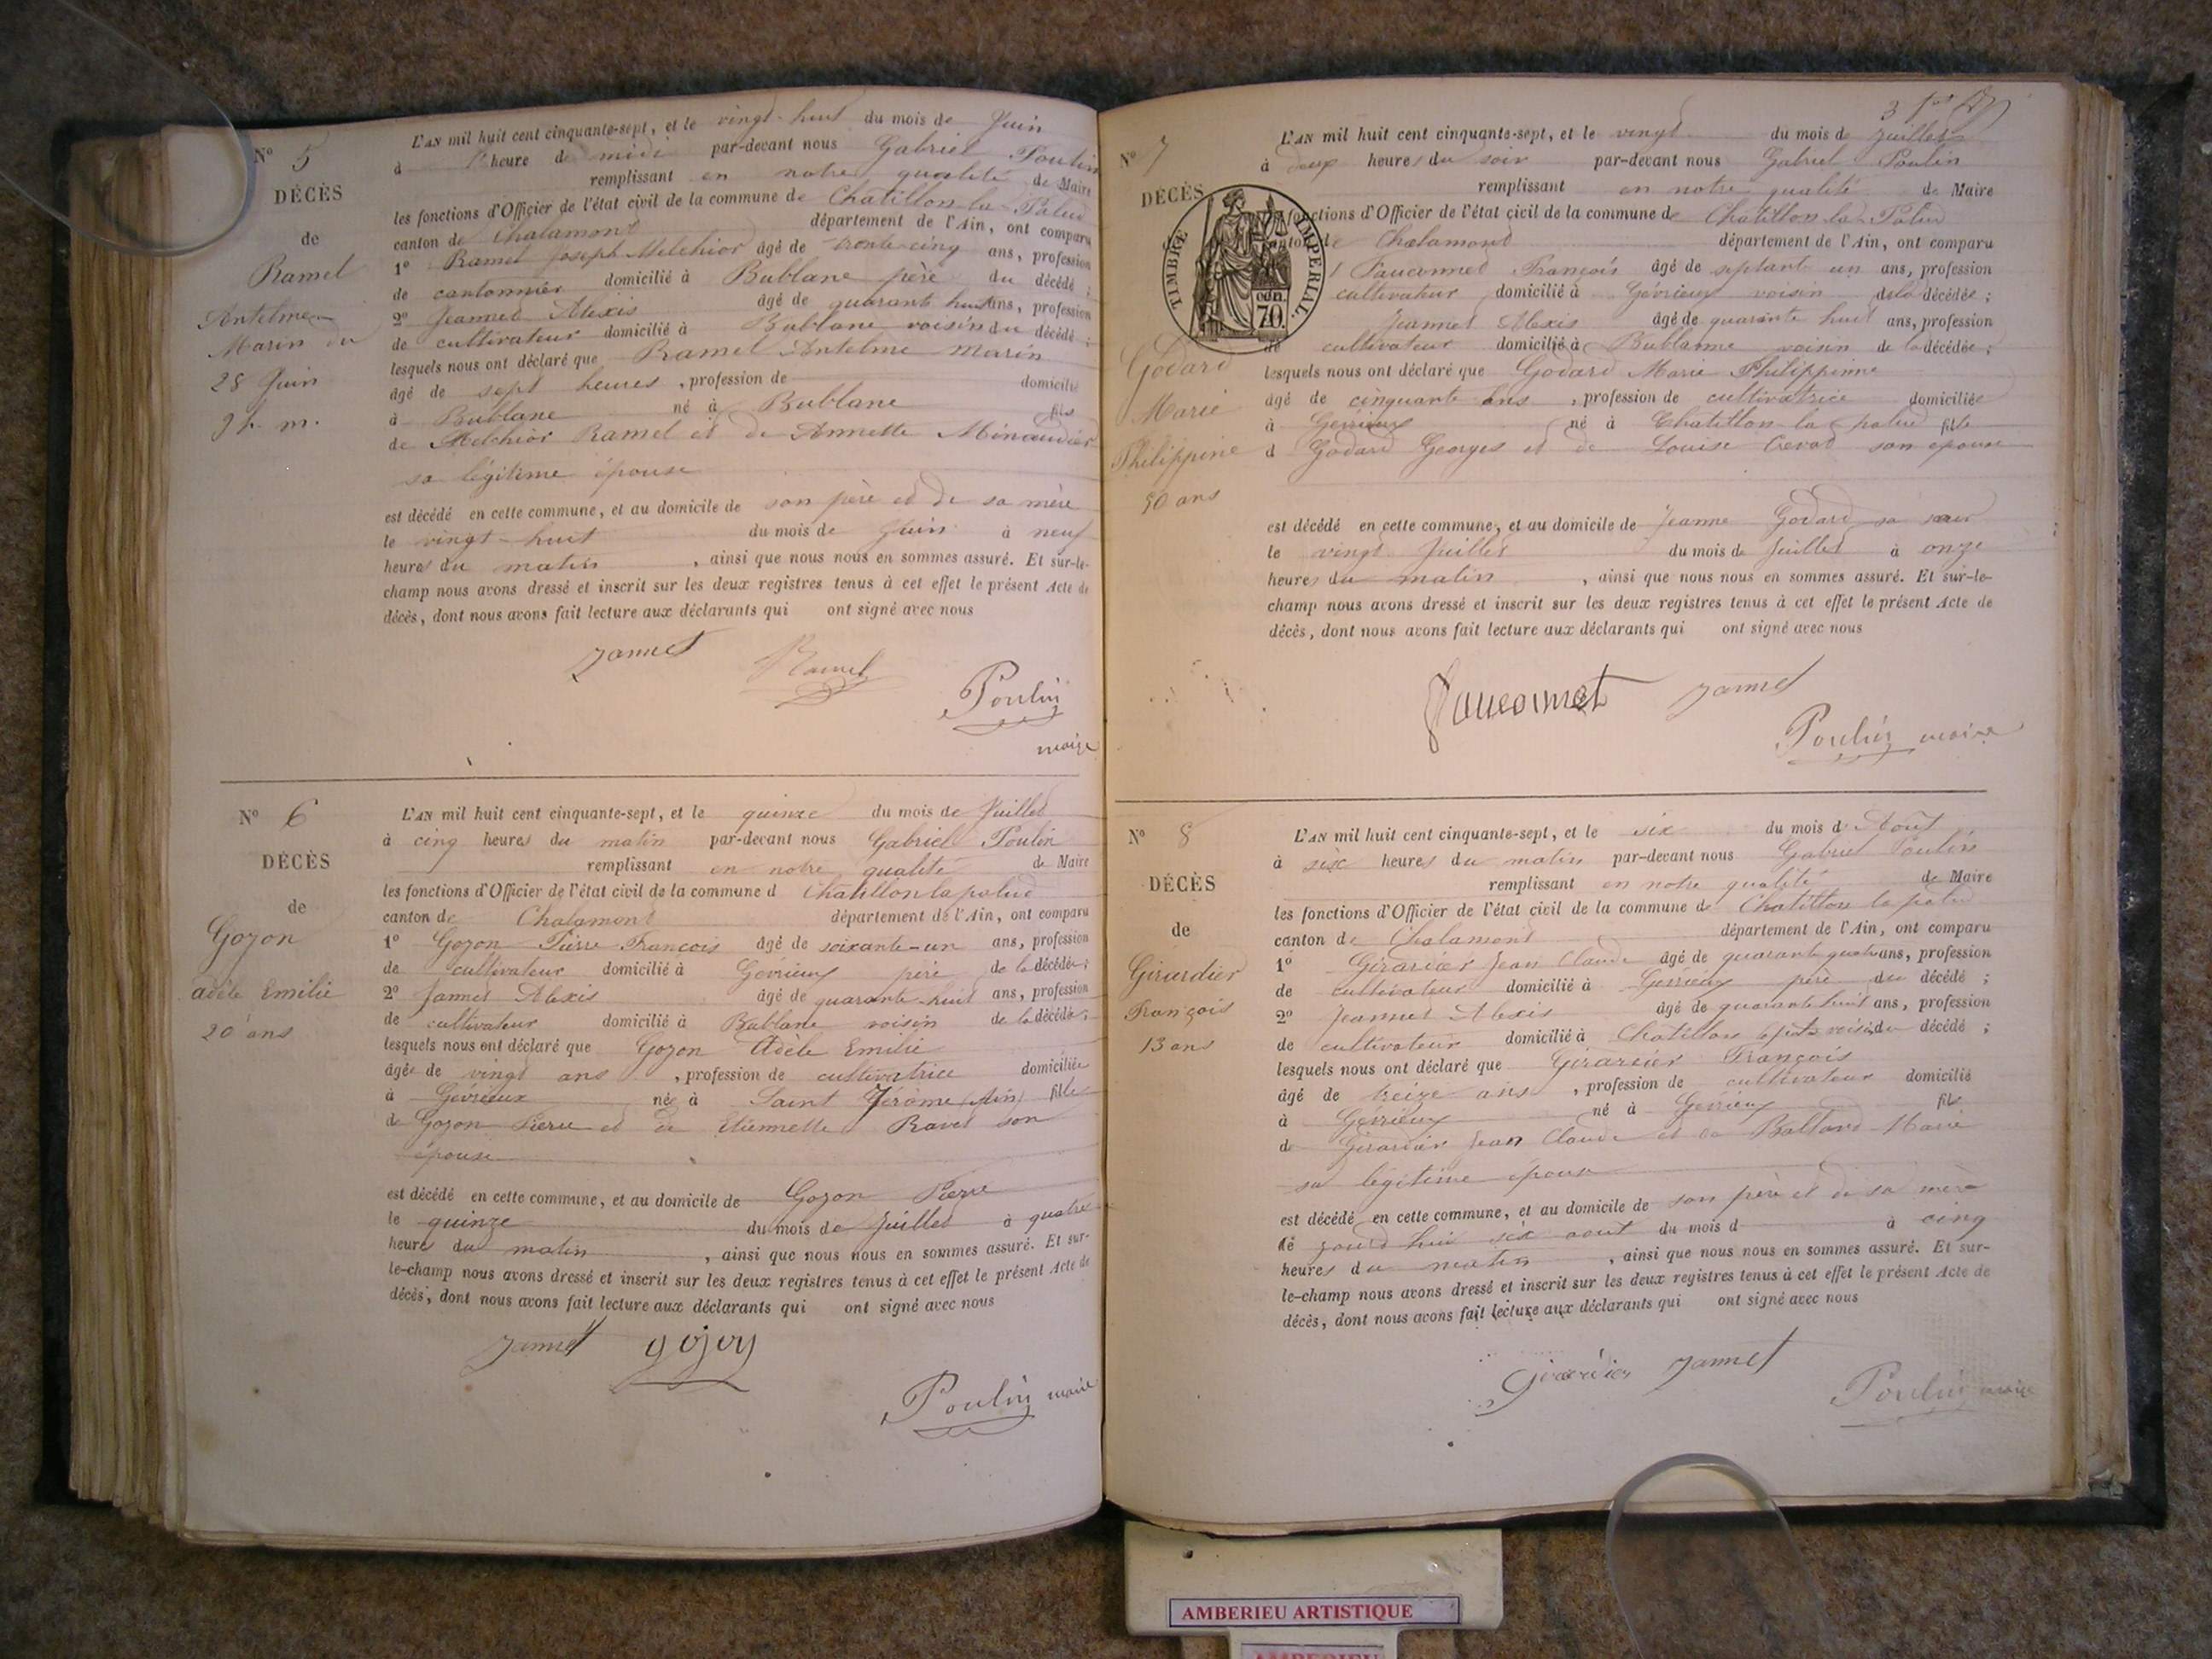 Nº 5
DÉCÈS
de
Ramel
Antelme
Marin du
28 Juin
9 h. m.
L'AN mil huit cent cinquante-sept, et le vingt-huit du mois de Juin
à 1 heure de midi par-devant nous Gabriel Poulin
remplissant en notre qualité de Maire
les fonctions d'Officier de l'état civil de la commune de Chatillon-la-Palud
canton de Chalamont département de l'Ain, ont comparu
1º Ramel Joseph Melchior âgé de trente-cinq ans, profession
de cantonnier domicilié à Bublane père du décédé ;
2º Jeannet Alexis âgé de quarante huit ans, profession
de cultivateur domicilié à Bublane voisin du décédé ;
lesquels nous ont déclaré que Ramel Antelme Marin
âgé de sept heures , profession de domicilié
à Bublane né à Bublane fils
de Melchior Ramel et de Annette Minaudier
sa légitime épouse
est décédé en cette commune, et au domicile de son père et de sa mère
le vingt-huit du mois de Juin à neuf
heures du matin , ainsi que nous nous en sommes assuré. Et sur-le-
champ nous avons dressé et inscrit sur les deux registres tenus à cet effet le présent Acte de
décès, dont nous avons fait lecture aux déclarants qui ont signé avec nous
Jannet Ramel Poulin
maire
Nº 6
DÉCÈS
de
Gozon
adèle Emilie
20 ans
L'AN mil huit cent cinquante-sept, et le quinze du mois de Juillet
à cinq heures du matin par-devant nous Gabriel Poulin
remplissant en notre qualité de Maire
les fonctions d'Officier de l'état civil de la commune d Chatillon la palud
canton de Chalamont département de l'Ain, ont comparu
1º Gozon Pierre François âgé de soixante-un ans, profession
de cultivateur domicilié à Gévrieux père de la décédée ;
2º Jannet Alexis âgé de quarante-huit ans, profession
de cultivateur domicilié à Bublane voisin de la décédée ;
lesquels nous ont déclaré que Gozon Adèle Emilie
âgée de vingt ans , profession de cultivatrice domiciliée
à Gévrieux née à Saint Jérome (Ain) fille
de Gozon Pierre et de Etiennette Ravet son
épouse
est décédé en cette commune, et au domicile de Gozon Pierre
le quinze du mois de Juillet à quatre
heures du matin , ainsi que nous nous en sommes assuré. Et sur-
le-champ nous avons dressé et inscrit sur les deux registres tenus à cet effet le présent Acte de
décès, dont nous avons fait lecture aux déclarants qui ont signé avec nous
Jannet gojon
Poulin maire
3
Nº 7
DÉCÈS
TIMBRE IMPERIAL
70
Godard
Marie
Philippine
50 ans
L'AN mil huit cent cinquante-sept, et le vingt du mois de Juillet
à deux heures du soir par-devant nous Gabriel Poulin
remplissant en notre qualité de Maire
fonctions d'Officier de l'état civil de la commune de Chatillon-la-Palud
canton de Chalamont département de l'Ain, ont comparu
1 Fauconnet François âgé de septante un ans, profession
cultivateur domicilié à Gévrieux voisin de la décédée ;
Jeannet Alexis âgé de quarante huit ans, profession
de cultivateur domicilié à Bublanne voisin de la décédée ;
lesquels nous ont déclaré que Godard Marie Philippine
âgé de cinquante ans , profession de cultivatrice domiciliée
à Gévrieux né à Chatillon la palud fille
d Godard Georges et de Louise Crevat son épouse
est décédé en cette commune, et au domicile de Jeanne Godard sa sœur
le vingt Juillet du mois de Juillet à onze
heures du matin , ainsi que nous nous en sommes assuré. Et sur-le-
champ nous avons dressé et inscrit sur les deux registres tenus à cet effet le présent Acte de
décès, dont nous avons fait lecture aux déclarants qui ont signé avec nous
Fauconnet Jannet
Poulin maire
Nº 8
DÉCÈS
de
Girardier
François
13 ans
L'AN mil huit cent cinquante-sept, et le six du mois d Août
à six heures du matin par-devant nous Gabriel Poulin
remplissant en notre qualité de Maire
les fonctions d'Officier de l'état civil de la commune de Chatillon la palud
canton de Chalamont département de l'Ain, ont comparu
1º Girardier Jean Claude âgé de quarante quatre ans, profession
de cultivateur domicilié à Gévrieux père du décédé ;
2º Jeannet Alexis âgé de quarante huit ans, profession
de cultivateur domicilié à Chatillon voisin du décédé ;
lesquels nous ont déclaré que Girardier François
âgé de treize ans , profession de cultivateur domicilié
à Gévrieux né à Gévrieux fils
de Girardier Jean Claude et de Balland Marie
sa légitime épouse
est décédé en cette commune, et au domicile de son père et de sa mère
lé jourd hui six aout du mois d à cinq
heures du matin , ainsi que nous nous en sommes assuré. Et sur-
le-champ nous avons dressé et inscrit sur les deux registres tenus à cet effet le présent Acte de
décès, dont nous avons fait lecture aux déclarants qui ont signé avec nous
Girardier Jannet
Poulin maire
AMBERIEU ARTISTIQUE
AMBERIEU